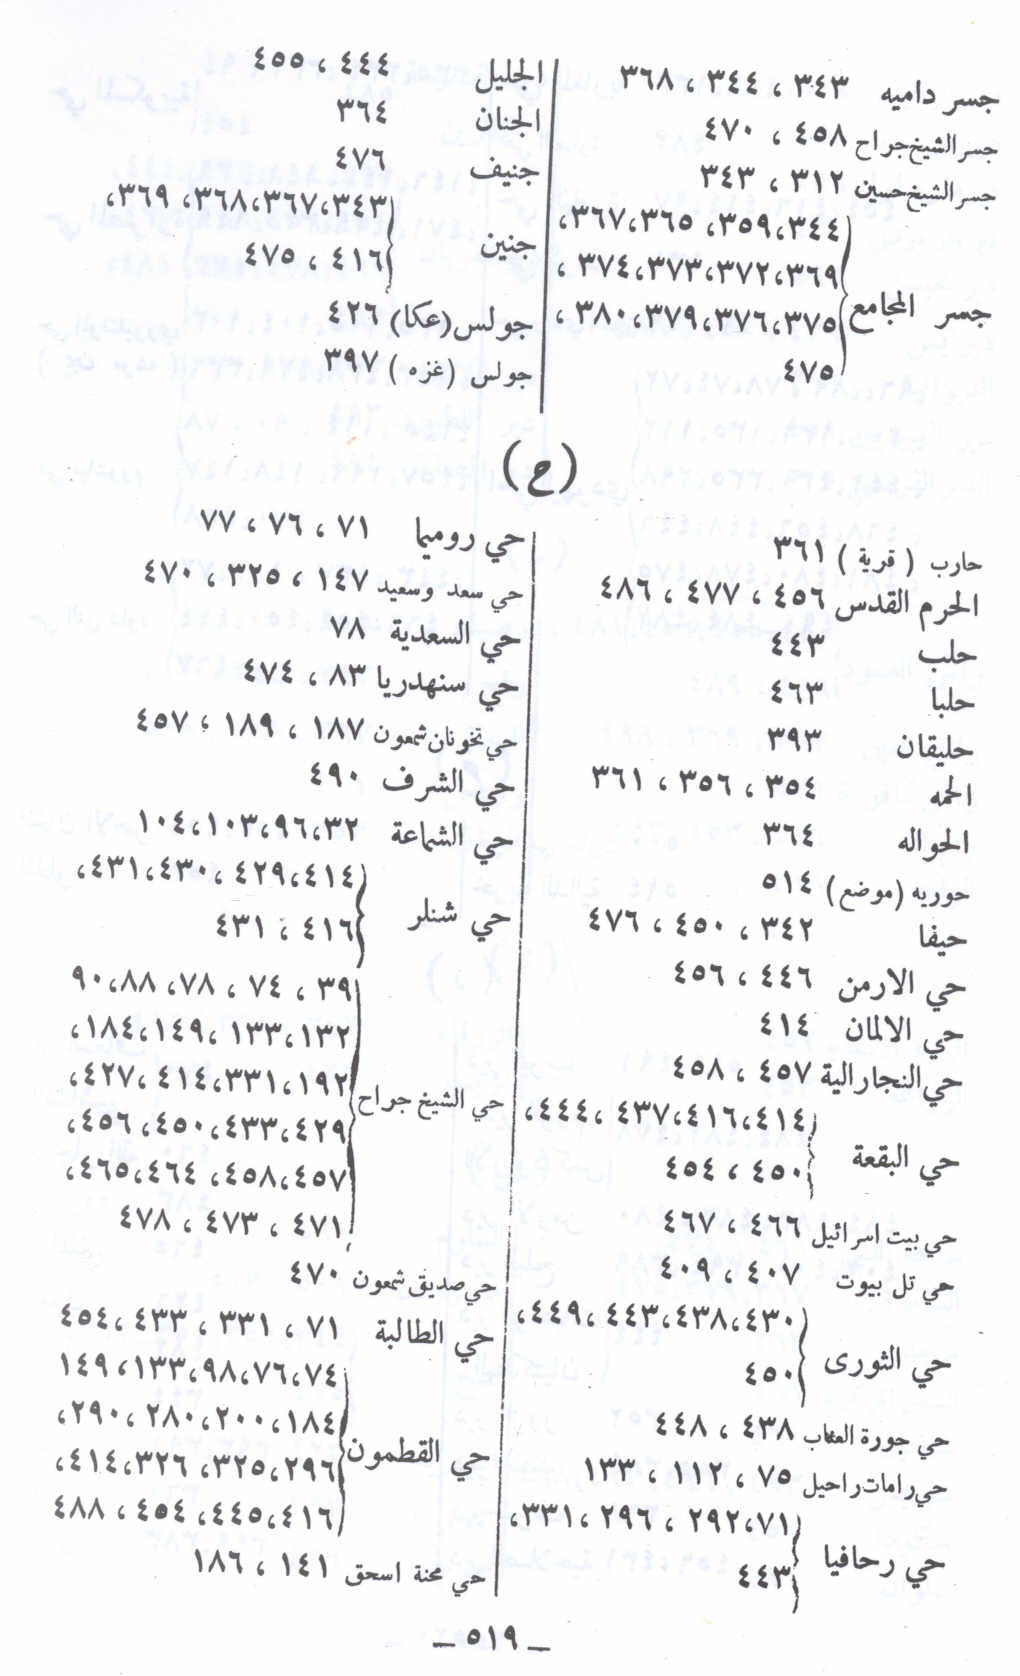 جسر داميه ٣٤٣ ، ٣٤٤ ، ٣٦٨
جسر الشيخ جراح ٤٥٨ ، ٤٧٠
جسر الشيخ حسين ٣١٢ ، ٣٤٣
جسر المجامع ٣٤٤،٣٥٩، ٣٦٥،٣٦٧،
٣٦٩،٣٧٢،٣٧٣،٣٧٤ ،
٣٧٥،٣٧٦،٣٧٩،٣٨٠ ،
٤٧٥
الجليل ٤٤٤ ، ٤٥٥
الجنان ٣٦٤
جنيف ٤٧٦
جنين ٣٤٣،٣٦٧،٣٦٨، ٣٦٩،
٤١٦ ، ٤٧٥
جولس (عكا) ٤٢٦
جولس (غزه) ٣٩٧
(ح)
حارب ( قرية ) ٣٦١
الحرم القدس ٤٥٦ ، ٤٧٧ ، ٤٨٦
حلب ٤٤٣
حلبا ٤٦٣
حليقان ٣٩٣
الحمه ٣٥٤ ، ٣٥٦ ، ٣٦١
الحواله ٣٦٤
حوريه (موضع) ٥١٤
حيفا ٣٤٢ ، ٤٥٠ ، ٤٧٦
حي الارمن ٤٤٦ ، ٤٥٦
حي الالمان ٤١٤
حي النجارالية ٤٥٧ ، ٤٥٨
حي البقعة ٤١٤،٤١٦،٤٣٧ ،٤٤٤،
٤٥٠ ، ٤٥٤
حي بيت اسرائيل ٤٦٦ ، ٤٦٧
حي تل بيوت ٤٠٧ ، ٤٠٩
حي الثورى ٤٣٠،٤٣٨،٤٤٣ ،٤٤٩،
٤٥٠
حي جورة العناب ٤٣٨ ، ٤٤٨
حي رامات راحيل ٧٥ ، ١١٢ ، ١٣٣
حي رحافيا ٧١،٢٩٢ ، ٢٩٦ ،٣٣١،
٤٤٣
حي روميما ٧١ ، ٧٦ ، ٧٧
حي سعد وسعيد ١٤٧ ، ٣٢٥ ، ٤٧٠
حي السعدية ٧٨
حي سنهدريا ٨٣ ، ٤٧٤
حي نخونان شمعون ١٨٧ ، ١٨٩ ، ٤٥٧
حي الشرف ٤٩٠
حي الشماعة ٣٢،٩٦،١٠٣،١٠٤
حي شنلر ٤١٤،٤٢٩ ،٤٣٠،٤٣١،
٤١٦ ، ٤٣١
حي الشيخ جراح ٣٩ ، ٧٤ ، ٧٨، ٨٨،٩٠
١٣٢،١٣٣ ،١٤٩،١٨٤،
١٩٢،٣٣١،٤١٤ ،٤٢٧،
٤٢٩،٤٣٣،٤٥٠، ٤٥٦،
٤٥٧،٤٥٨، ٤٦٤،٤٦٥،
٤٧١ ، ٤٧٣ ، ٤٧٨
حي صديق شمعون ٤٧٠
حي الطالبة ٧١ ، ٣٣١ ، ٤٣٣ ،٤٥٤
حي القطمون ٧٤،٧٦،٩٨،١٣٣، ١٤٩
١٨٤،٢٠٠،٢٨٠ ،٢٩٠،
٢٩٦،٣٢٥، ٣٢٦،٤١٤،
٤١٦،٤٤٥، ٤٥٤ ، ٤٨٨
حي محنة اسحق ١٤١ ، ١٨٦
ـ ٥١٩ ـ